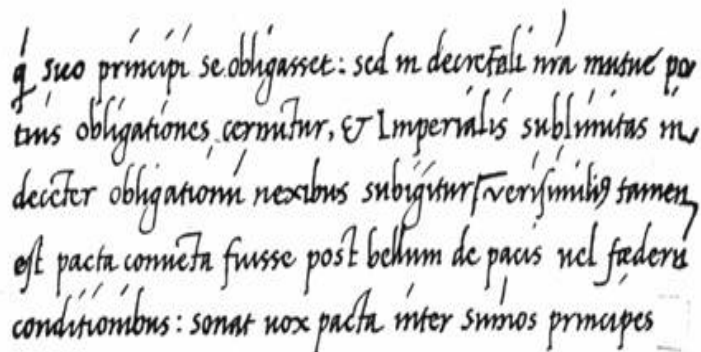 q̃ suo principi se obligasset: sed in decretali nr̃a mutue po
tius obligationes cernũtur, & Imperialis sublimitas in
decẽter obligationũ nexibus subigitur/ verisimiliꝰ tamen
est pacta conuẽta fuisse post bellum de pacis uel fœderũ
conditionibus: sonat uox pacta inter sum̃os principes